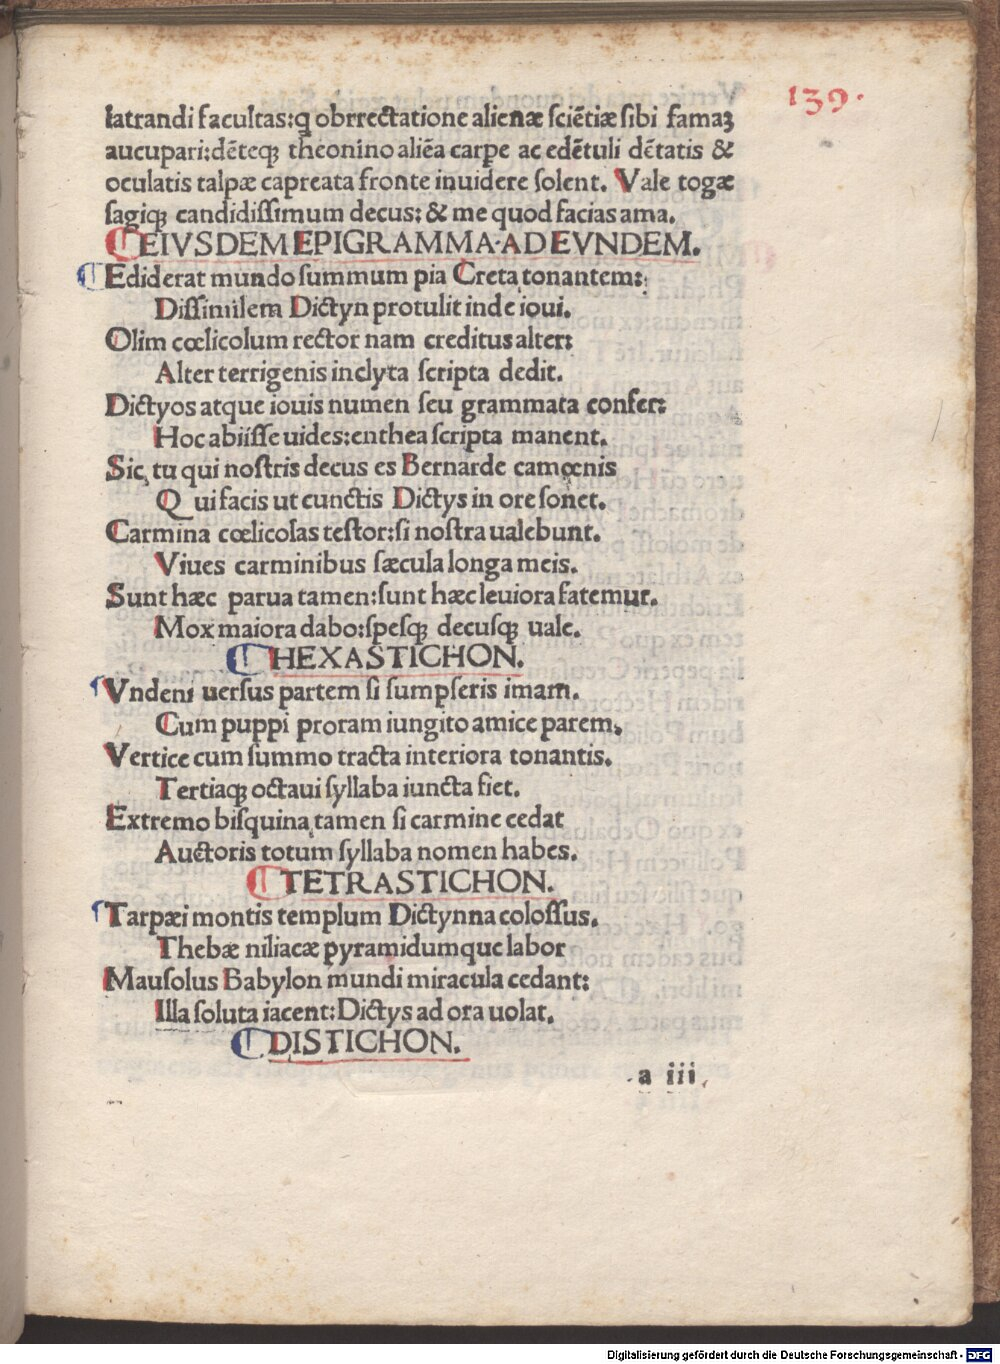 139.
latrandi facultas:q obrrectatione alienæ sciētiæ sibi famaꝫ
aucupari:dēteqꝫ theonino aliēa carpe ac edētuli dētatis &
oculatis talpæ capreata fronte inuidere solent. Vale togæ
sagiqꝫ candidissimum decus: & me quod facias ama.
EIVSDEM EPIGRAMMA·AD EVNDEM.
Ediderat mundo summum pia Creta tonantem:
Dissimilem Dictyn protulit inde ioui.
Olim cœlicolum rector nam creditus alter:
Alter terrigenis inclyta scripta dedit.
Dictyos atque iouis numen seu grammata confer:
Hoc abiisse uides:enthea scripta manent.
Sic tu qui nostris decus es Bernarde camœnis
Qui facis ut cunctis Dictys in ore sonet.
Carmina cœlicolas testor:si nostra ualebunt.
Viues carminibus sæcula longa meis.
Sunt hæc parua tamen:sunt hæc leuiora fatemur.
Mox maiora dabo:spesqꝫ decusqꝫ uale.
HEXASTICHON.
Vndeni uersus partem si sumpseris imam.
Cum puppi proram iungito amice parem,
Vertice cum summo tracta interiora tonantis.
Tertiaqꝫ octaui syllaba iuncta fiet.
Extremo bisquina tamen si carmine cedat
Auctoris totum syllaba nomen habes.
TETRASTICHON.
Tarpæi montis templum Dictynna colossus.
Thebæ niliacæ pyramidumque labor
Mausolus Babylon mundi miracula cedant:
Illa soluta iacent:Dictys ad ora uolat.
DISTICHON.
a iii
Digitalisierung gefördert durch die Deutsche Forschungsgemeinschaft - DFG